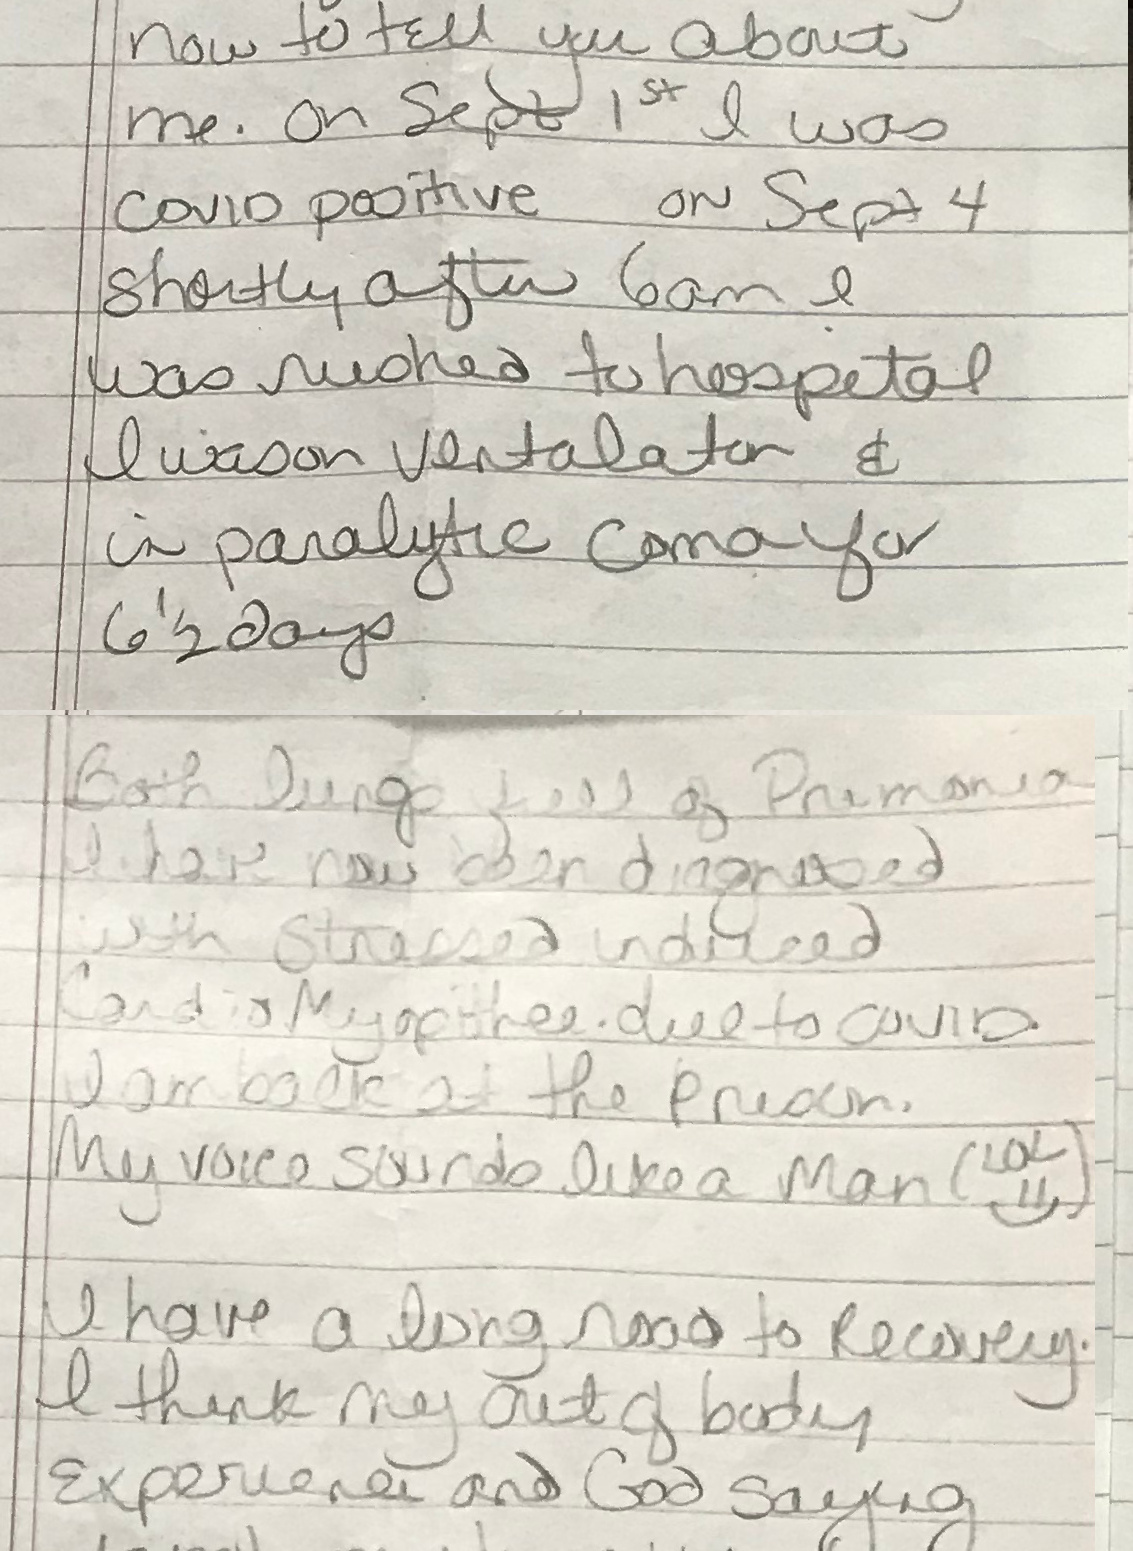 now to tell you about
me. On Sept 1st I was
covid positive on Sept 4
shortly after 6am I
was rushed to hospetal
I was on Ventalator &
in paralytic Coma for
6 1/2 days
Both lungs full of Pnemonia
I have now been diagnosed
with Stressed induced
Cardio Myopithee. due to covid.
I am back at the Prison.
My voice sounds like a Man (LOL
I have a long road to Recovery.
I think my out of body
Experience and God saying